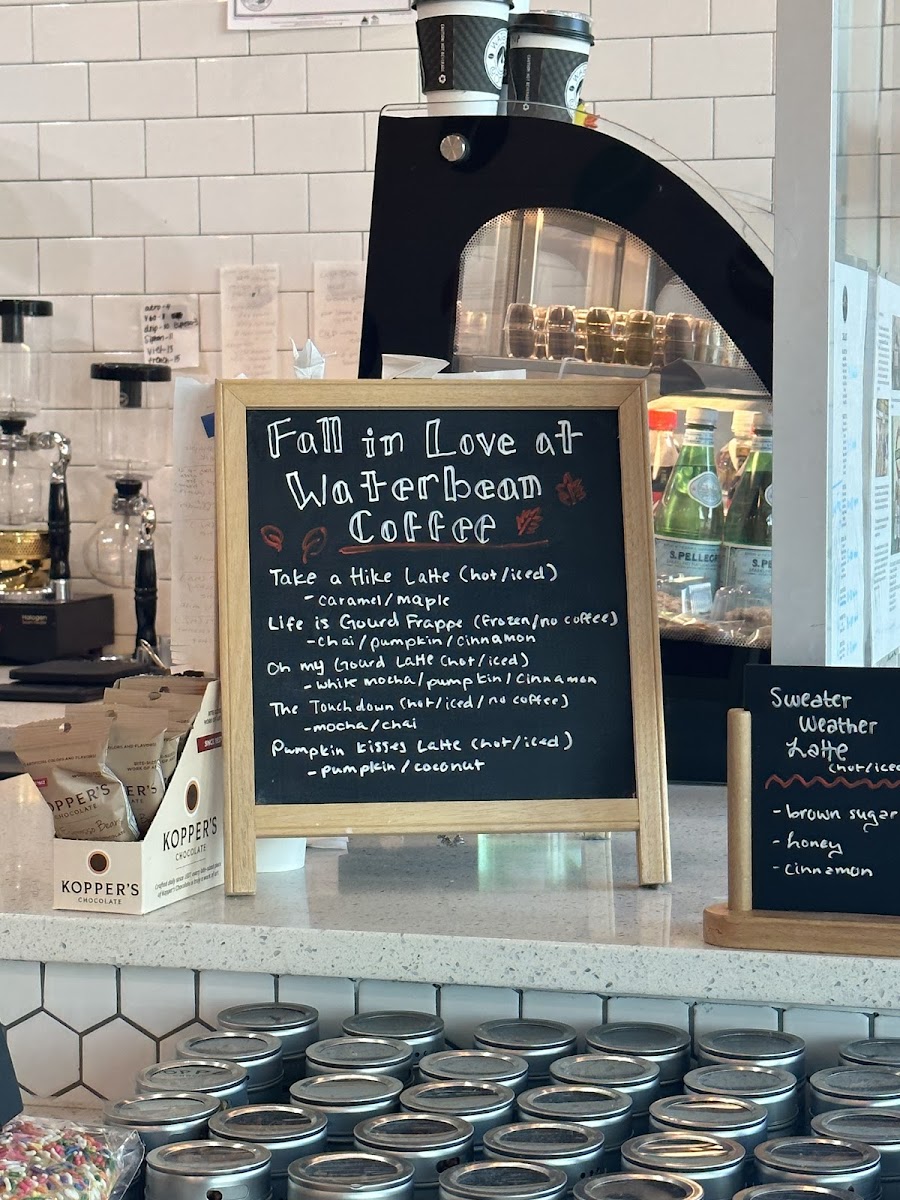 Fall in Love at
Waterbean
Coffee
Take a Hike Latte (hot/iced)
- caramel/maple
Life is Gourd Frappe (frozen/no coffee)
- chai/pumpkin/cinnamon
Oh my Gourd Latte (hot/iced)
- white mocha/pumpkin/cinnamon
The Touchdown (hot/iced/no coffee)
- mocha/chai
Pumpkin Kisses Latte (hot/iced)
- pumpkin/coconut
Sweater
Weather
Latte
(hot/iced
- brown sugar
- honey
- cinnamon
KOPPER'S
CHOCOLATE
KOPPER'S
CHOCOLATE
OPPER'S
CHOCOLATE
S.PELLEGR
S.PE